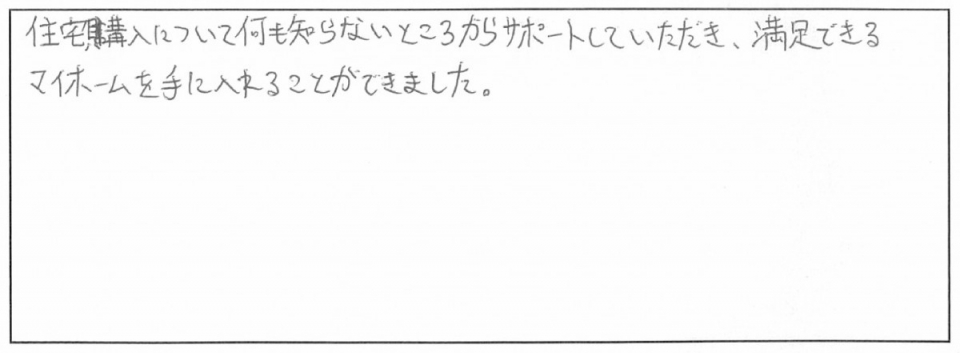 住宅購入について何も知らないところからサポートしていただき、満足できる
マイホームを手に入れることができました。